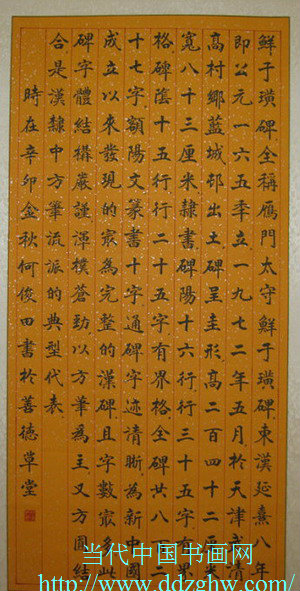 鮮于璜碑全稱雁門太守鮮于璜碑東漢延熹八年
即公元一六五季立一九七二年五月於天津武清
高村鄉蘭城邨出土碑呈圭形高二百四十二厘米
寬八十三厘米隸書碑陽十六行行三十五字有界
格碑蔭十五行行二十五字有界格全碑共八百二
十七字額陽文篆書十字通碑字迹清晰為新中國
成立以來發現的㝡為完整的漢碑且字數㝡多此
碑字體結構嚴謹渾樸蒼勁以方筆為主又方圓結
合是漢隸中方筆流派的典型代表
時在辛卯金秋何俊田書於善德草堂
当代中国书画网
http://www.ddzghw.com/